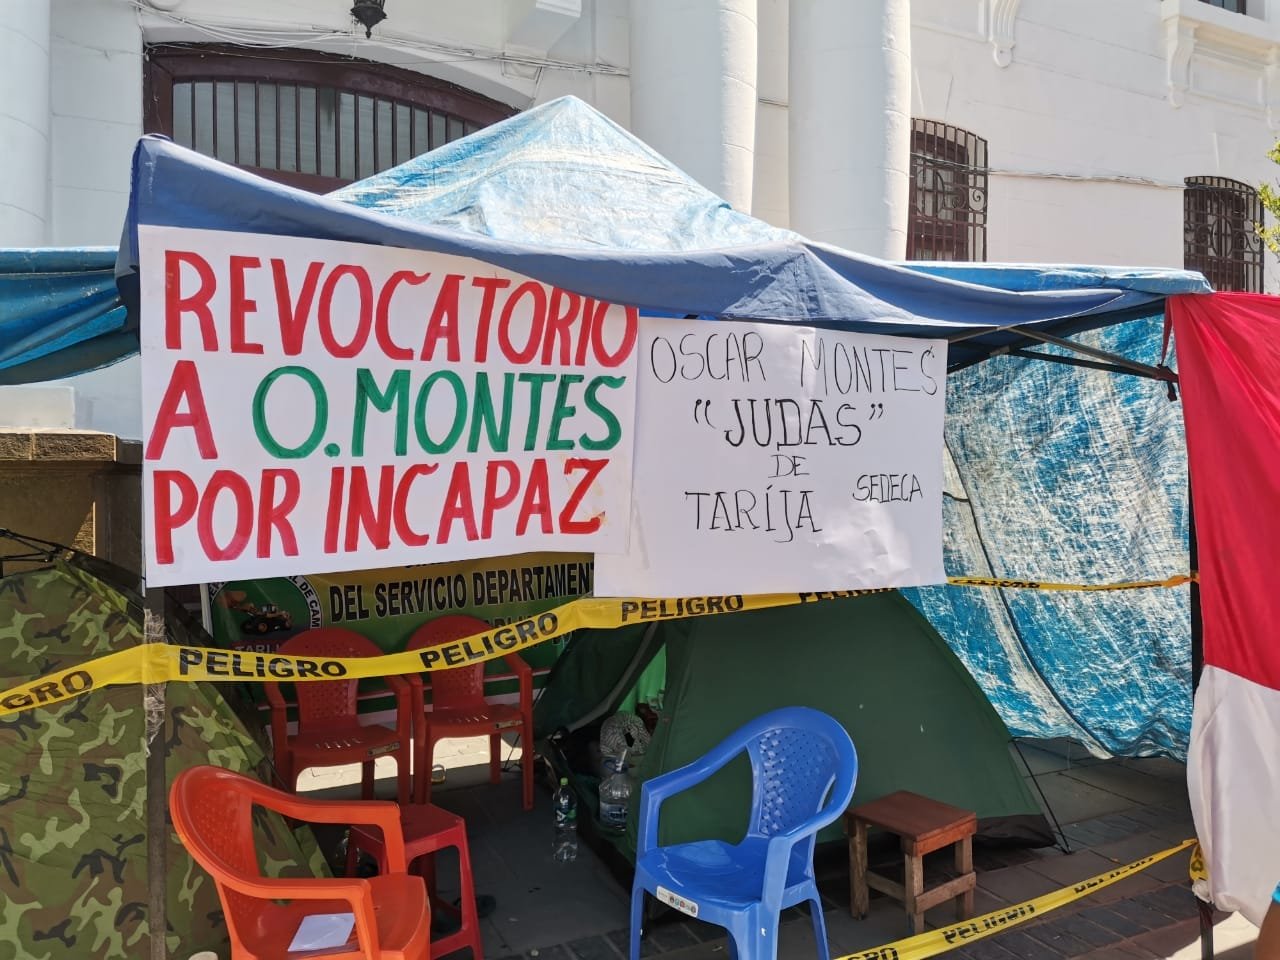 REVOCATORIO
A O. MONTES
POR INCAPAZ
OSCAR MONTES
"JUDAS"
DE
TARÍJA SEDECA
DEL SERVICIO DEPARTAMENT
DE CAM
GRO PELIGRO PELIGRO PELIGRO PELIGRO
PELIGRO
GRO